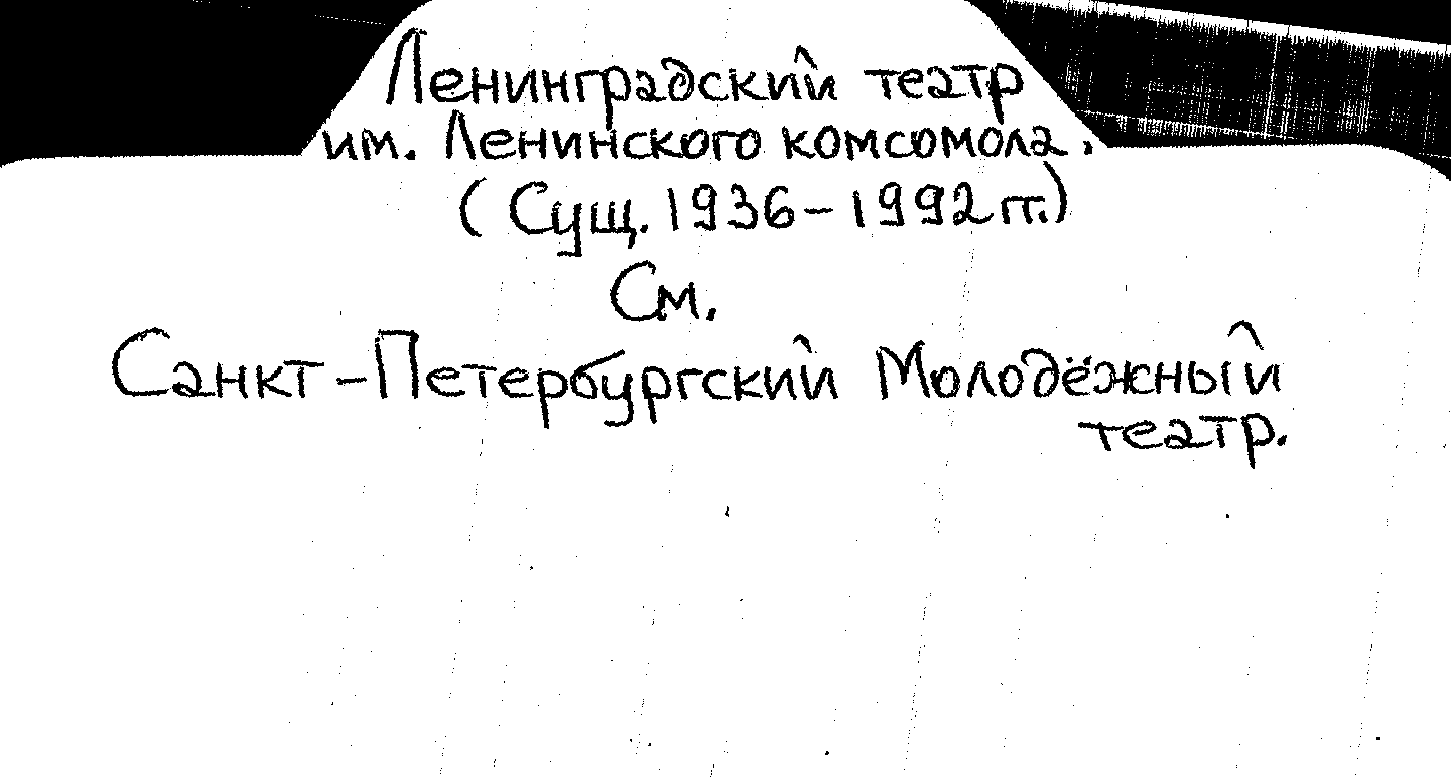 Ленинградский театр
им. Ленинского комсомола.
(Сущ. 1936–1992 гг.)
См.
Санкт-Петербургский Молодёжный
театр.